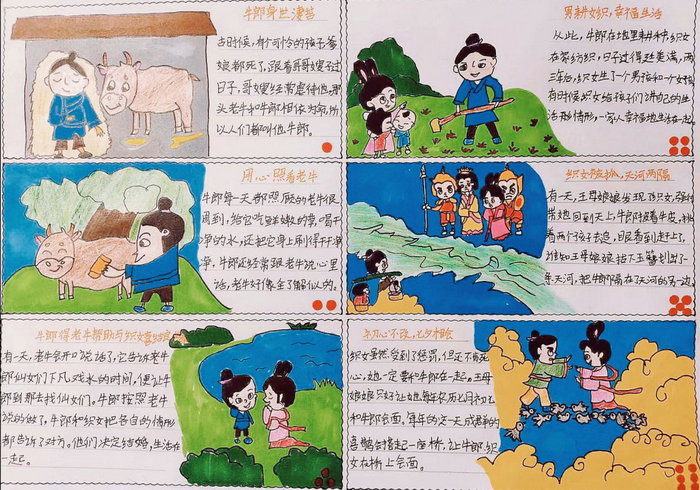 牛郎身世凄苦
古时候,有个可怜的孩子爹
娘都死了,跟着哥哥嫂子过
日子,哥嫂经常虐待他,那
头老牛和牛郎相依为命,所
以人们都叫他牛郎。
用心照看老牛
牛郎每一天都照顾的老牛很
周到,给它吃鲜嫩的草,喝干
净的水,还把它身上刷得干干净
净,牛郎还经常跟老牛说心里
话,老牛好像全了解似的。
牛郎得老牛帮助与织女喜结良缘
有一天,老牛会开口说话了,它告诉牛
郎仙女们下凡戏水的时间,便让牛
郎到那去找仙女们,牛郎按照老牛
说的做了,牛郎和织女把各自的情形
都告诉了对方。他们决定结婚,生活在
一起。
男耕女织,幸福生活
从此,牛郎在地里耕种,织女
在家纺织,日子过得甜美满,两
三年后,织女生了一个男孩和一个女孩
有时候织女给孩子们讲自己的生
活形情形,一家人幸福地生活在一起
织女被抓,天河两隔
有一天,王母娘娘发现了织女,强制
带她回到天上,牛郎披着牛皮,挑
着两个孩子去追,眼看到赶上了,
谁知王母娘娘拔下玉簪划出了一
条天河,把牛郎隔在了天河的另一边
初心不改,七夕相会
织女虽然受到了惩罚,但还不肯死
心,她一定要和牛郎在一起。王母
娘娘只好让她每年农历七月初七
和牛郎会面。每年的这一天成群的
喜鹊会搭起一座桥,让牛郎,织
女在桥上会面。